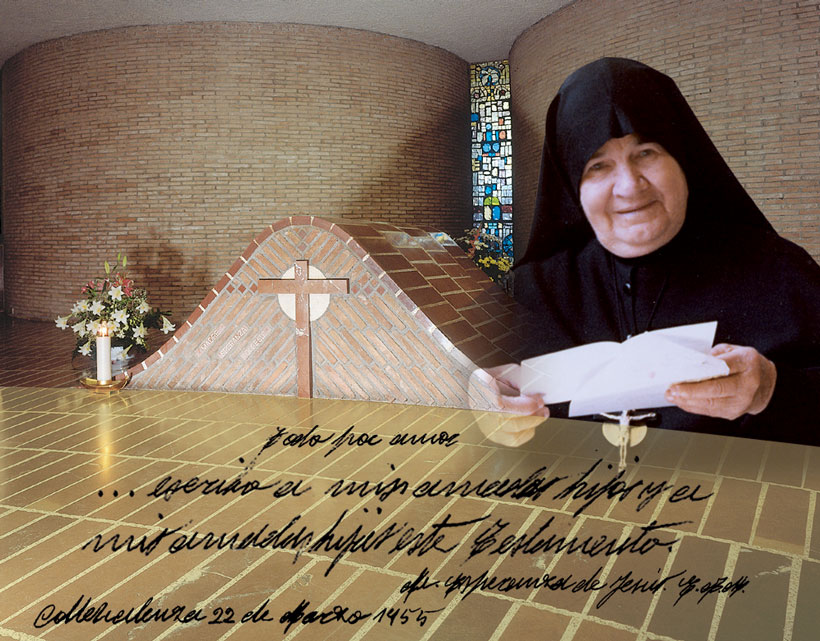 Todo por amor
... escribo a mis amados hijos y a
mis amadas hijas este Testamento.
Esperanza de Jesús.
Collevalenza 22 de Marzo 1955